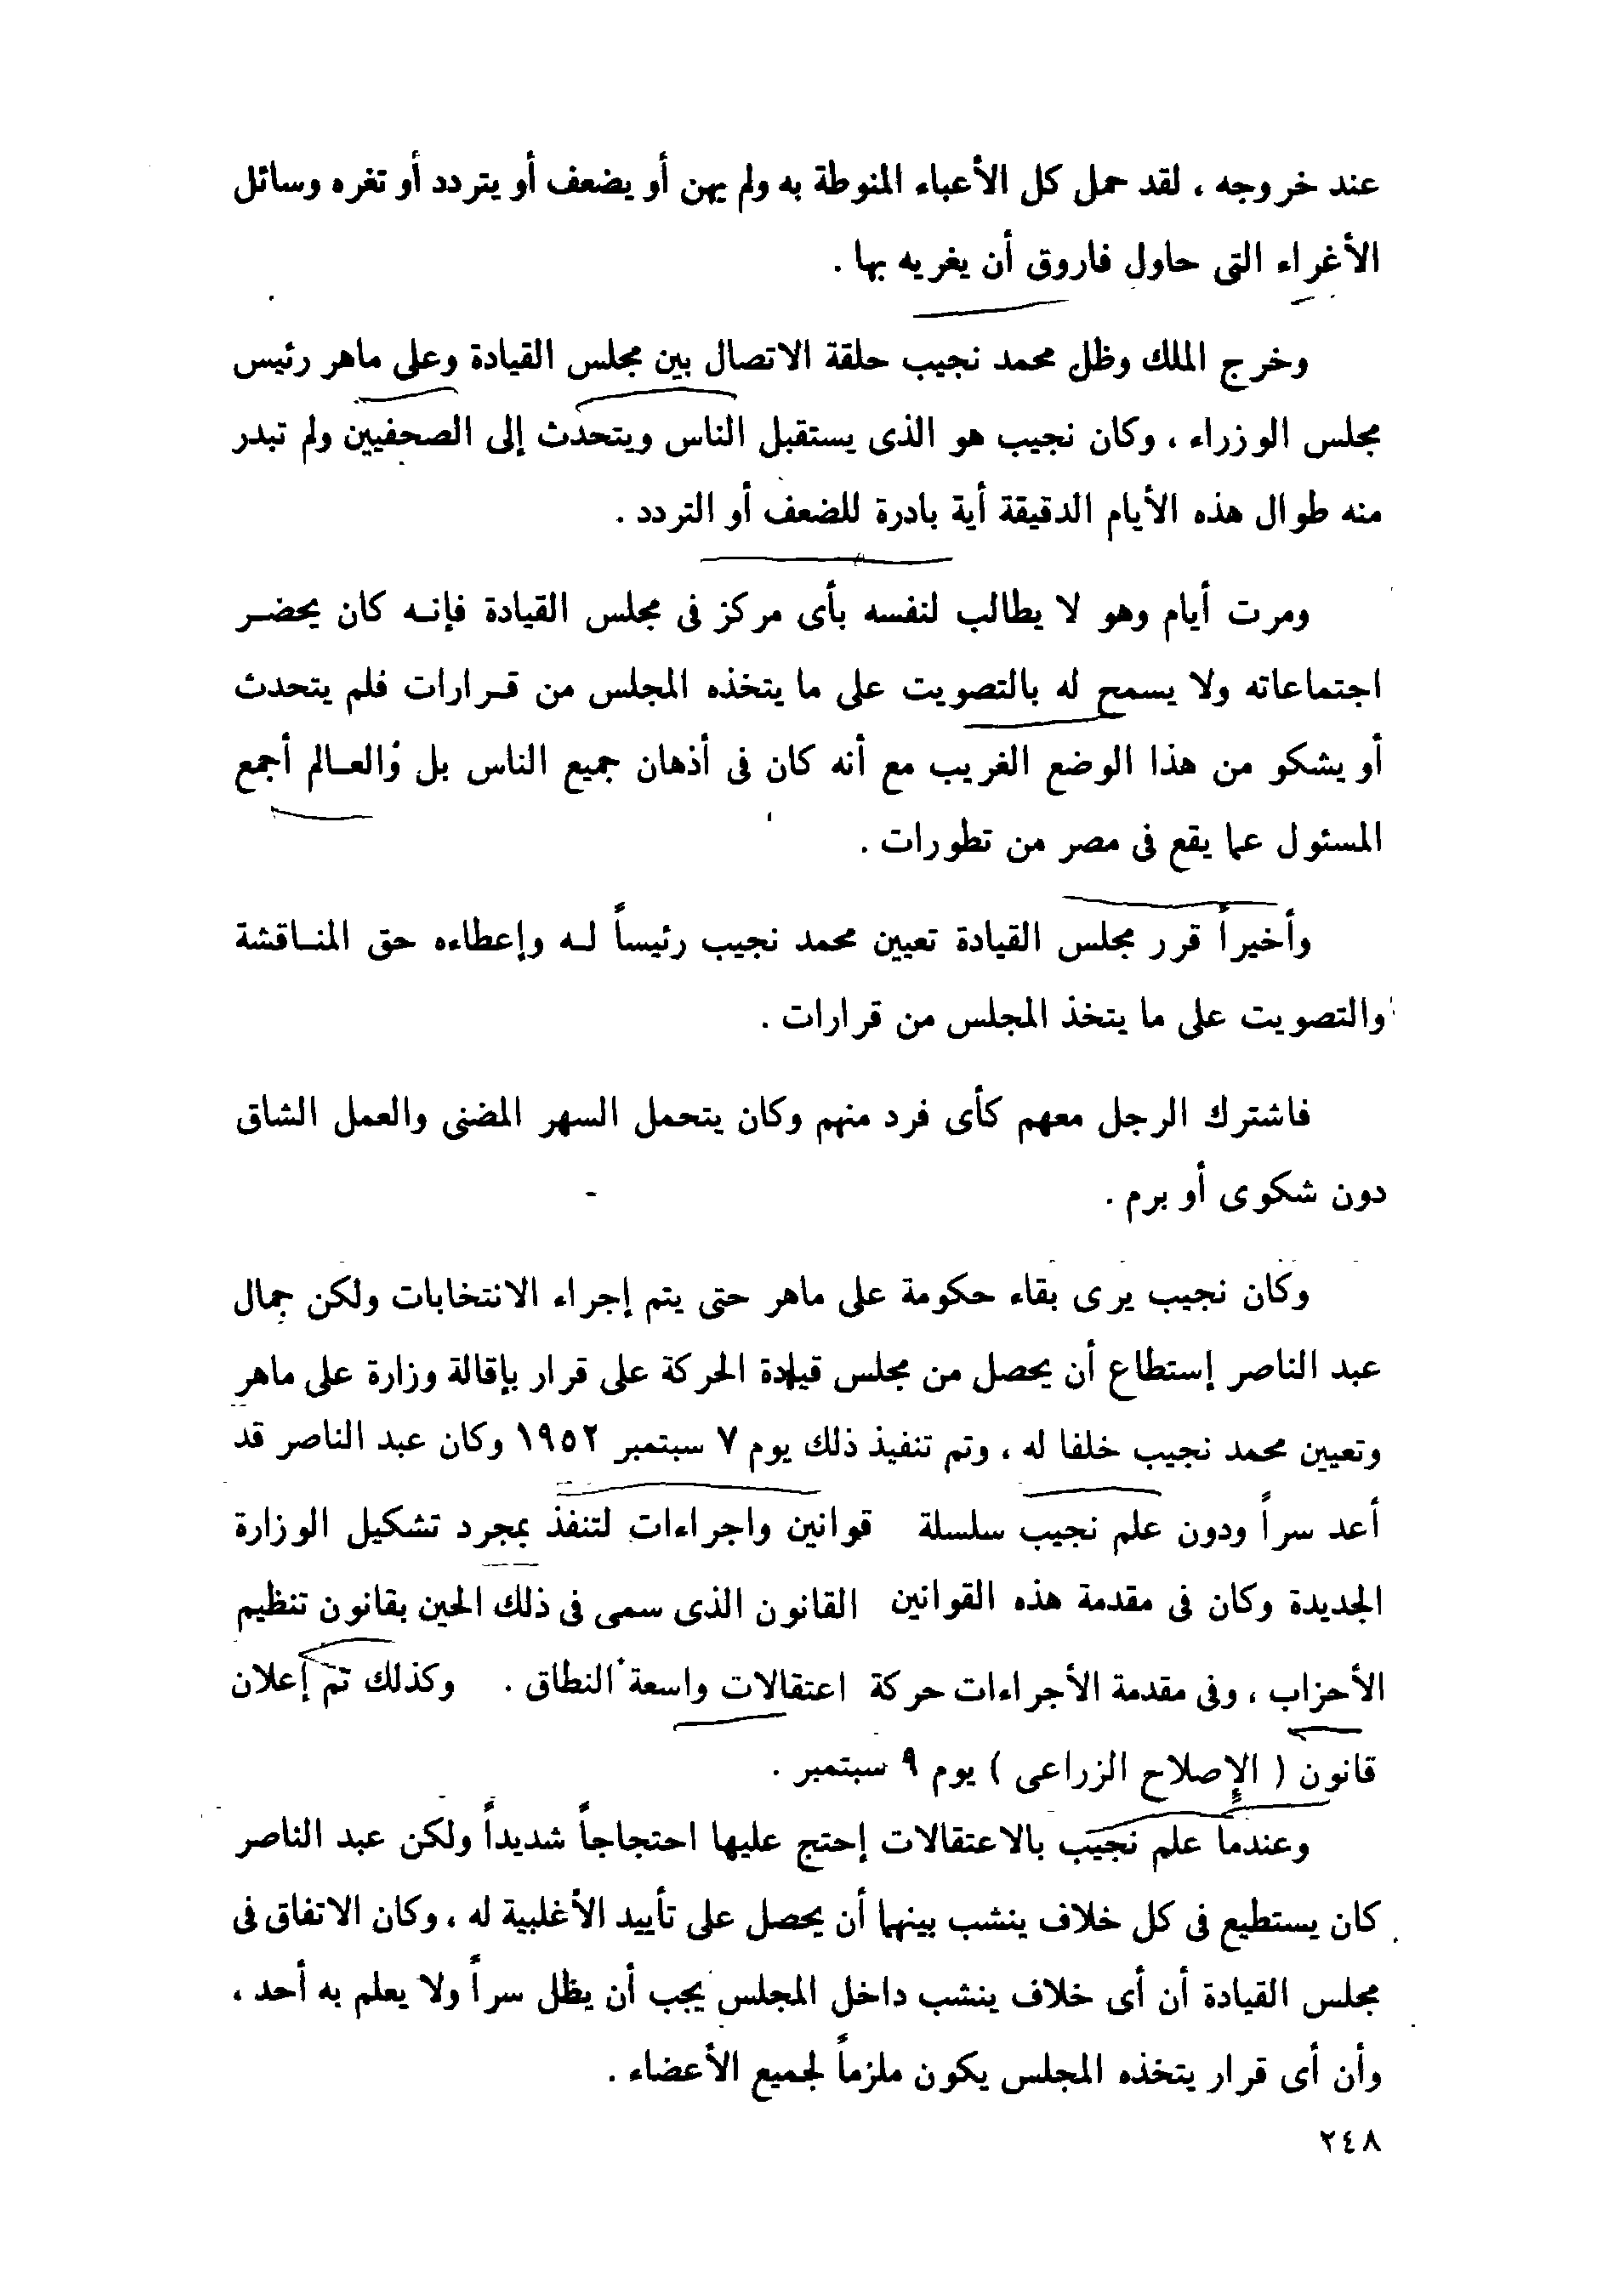 عند خروجه ، لقد حمل كل الأعباء المنوطة به ولم يهن أو يضعف أو يتردد أو تغره وسائل
الأغراء التى حاول فاروق أن يغريه بها .
وخرج الملك وظل محمد نجيب حلقة الاتصال بين مجلس القيادة وعلى ماهر رئيس
مجلس الوزراء ، وكان نجيب هو الذى يستقبل الناس ويتحدث إلى الصحفيين ولم تبدر
منه طوال هذه الأيام الدقيقة أية بادرة للضعف أو التردد .
ومرت أيام وهو لا يطالب لنفسه بأى مركز فى مجلس القيادة فإنه كان يحضر
اجتماعاته ولا يسمح له بالتصويت على ما يتخذه المجلس من قرارات فلم يتحدث
أو يشكو من هذا الوضع الغريب مع أنه كان فى أذهان جميع الناس بل والعالم أجمع
المسئول عما يقع فى مصر من تطورات .
وأخيراً قرر مجلس القيادة تعيين محمد نجيب رئيساً له وإعطاءه حق المناقشة
والتصويت على ما يتخذ المجلس من قرارات .
فاشترك الرجل معهم كأى فرد منهم وكان يتحمل السهر المضنى والعمل الشاق
دون شكوى أو برم .
وكان نجيب يرى بقاء حكومة على ماهر حتى يتم إجراء الانتخابات ولكن جمال
عبد الناصر إستطاع أن يحصل من مجلس قيادة الحركة على قرار بإقالة وزارة على ماهر
وتعيين محمد نجيب خلفا له ، وتم تنفيذ ذلك يوم ٧ سبتمبر ١٩٥٢ وكان عبد الناصر قد
أعد سراً ودون علم نجيب سلسلة قوانين واجراءات لتنفذ بمجرد تشكيل الوزارة
الجديدة وكان فى مقدمة هذه القوانين القانون الذى سمى فى ذلك الحين بقانون تنظيم
الأحزاب ، وفى مقدمة الأجراءات حركة اعتقالات واسعة النطاق . وكذلك تم إعلان
قانون ( الإصلاح الزراعى ) يوم ٩ سبتمبر .
وعندما علم نجيب بالاعتقالات إحتج عليها احتجاجاً شديداً ولكن عبد الناصر
كان يستطيع فى كل خلاف ينشب بينهما أن يحصل على تأييد الأغلبية له ، وكان الاتفاق فى
مجلس القيادة أن أى خلاف ينشب داخل المجلس يجب أن يظل سراً ولا يعلم به أحد ،
وأن أى قرار يتخذه المجلس يكون ملزماً لجميع الأعضاء .
٢٤٨